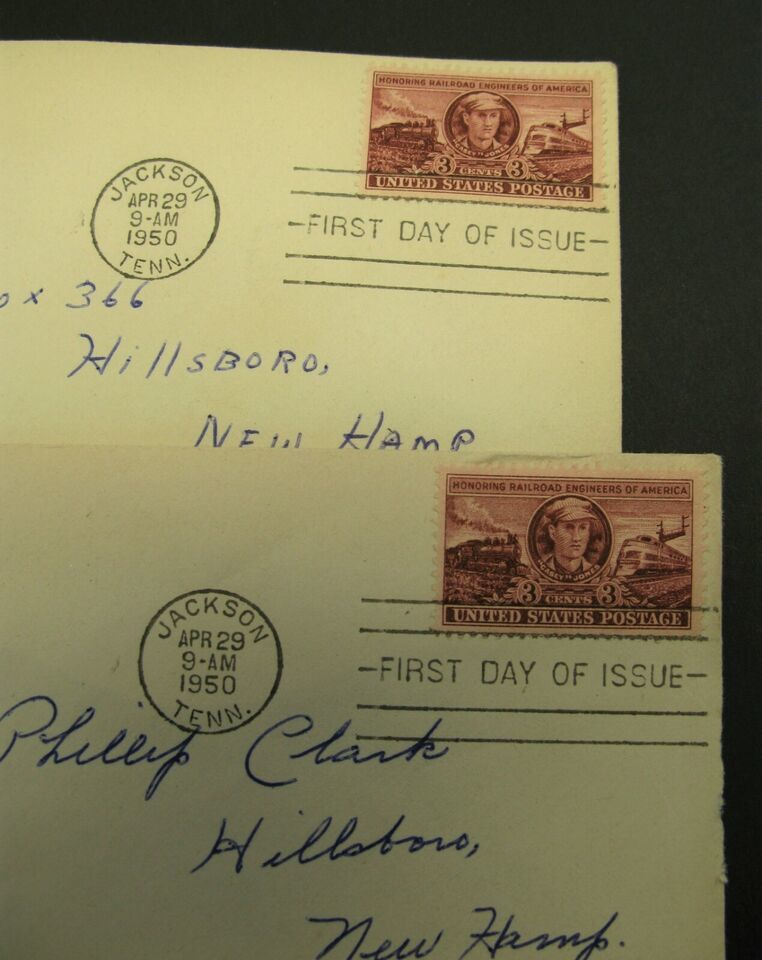 HONORING RAILROAD ENGINEERS OF AMERICA
"CASEY" JONES
3 CENTS 3
UNITED STATES POSTAGE
JACKSON
APR 29
9-AM
1950
TENN.
FIRST DAY OF ISSUE
366
HILLSBORO,
NEW HAMP
HONORING RAILROAD ENGINEERS OF AMERICA
"CASEY" JONES
3 CENTS 3
UNITED STATES POSTAGE
JACKSON
APR 29
9-AM
1950
TENN.
FIRST DAY OF ISSUE
Phillip Clark
Hillsboro,
New Hamp.